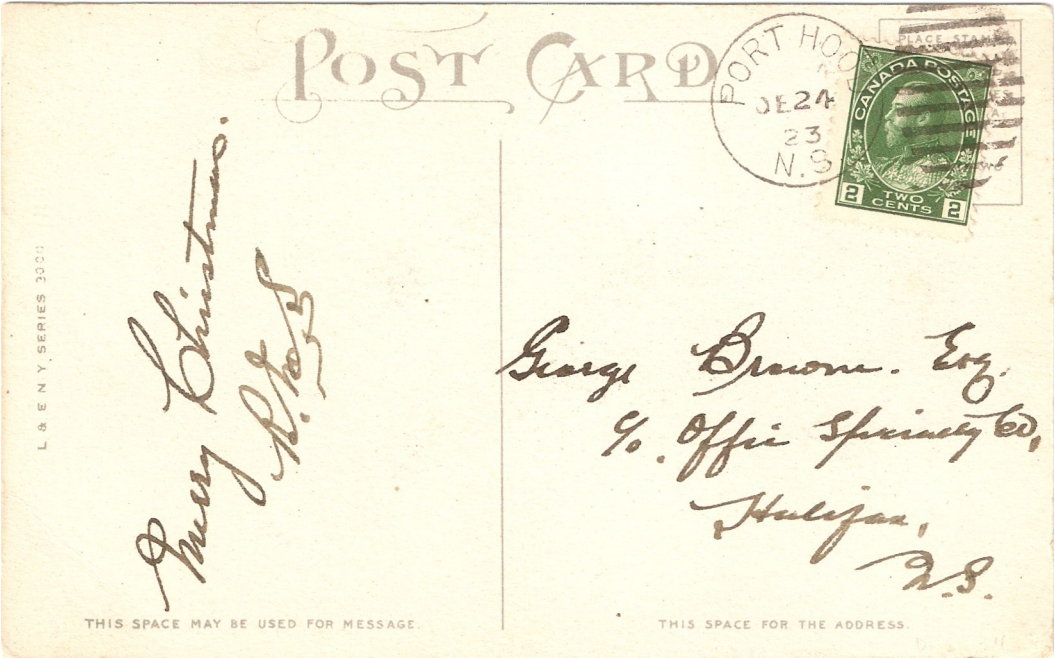 POST CARD
PLACE STAMP
PORT HOO
DE 24
23
N.S
CANADA POSTAGE
2 TWO CENTS 2
L & E N Y, SERIES 300
Merry Christmas.
George Browne. Esq.
c/o. Office Specialty Co,
Halifax,
N.S.
THIS SPACE MAY BE USED FOR MESSAGE.
THIS SPACE FOR THE ADDRESS.